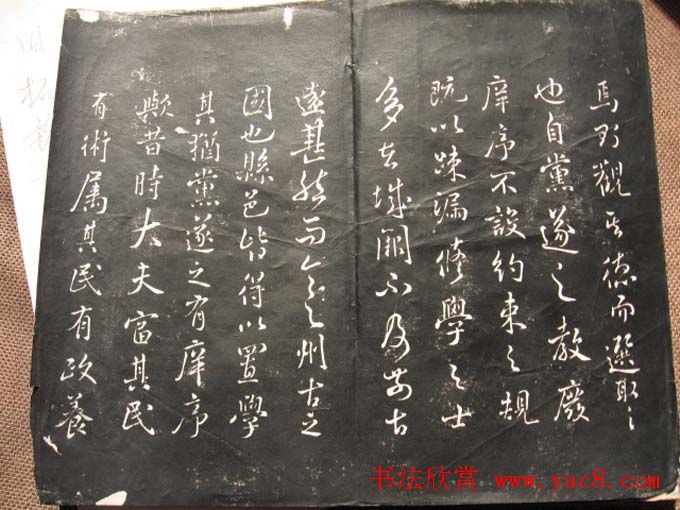 焉所觀其德而選取之
也自黨遂之教廢
庠序不設約束之規
既以疎漏修學之士
多在城闕不及前古
遠甚然而今之州古之
國也縣邑皆得以置學
其猶黨遂之有庠序
歟昔時大夫富其民
有術屬其民有政養
旧拓
书法欣赏 www.yac8.com